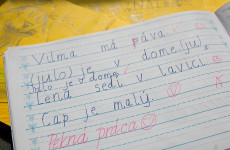 Vilma má páva.
(julo) je v dome(ju).
Julo je v dome.
Lena sedí v lavici.
Cap je malý.
Pekná práca